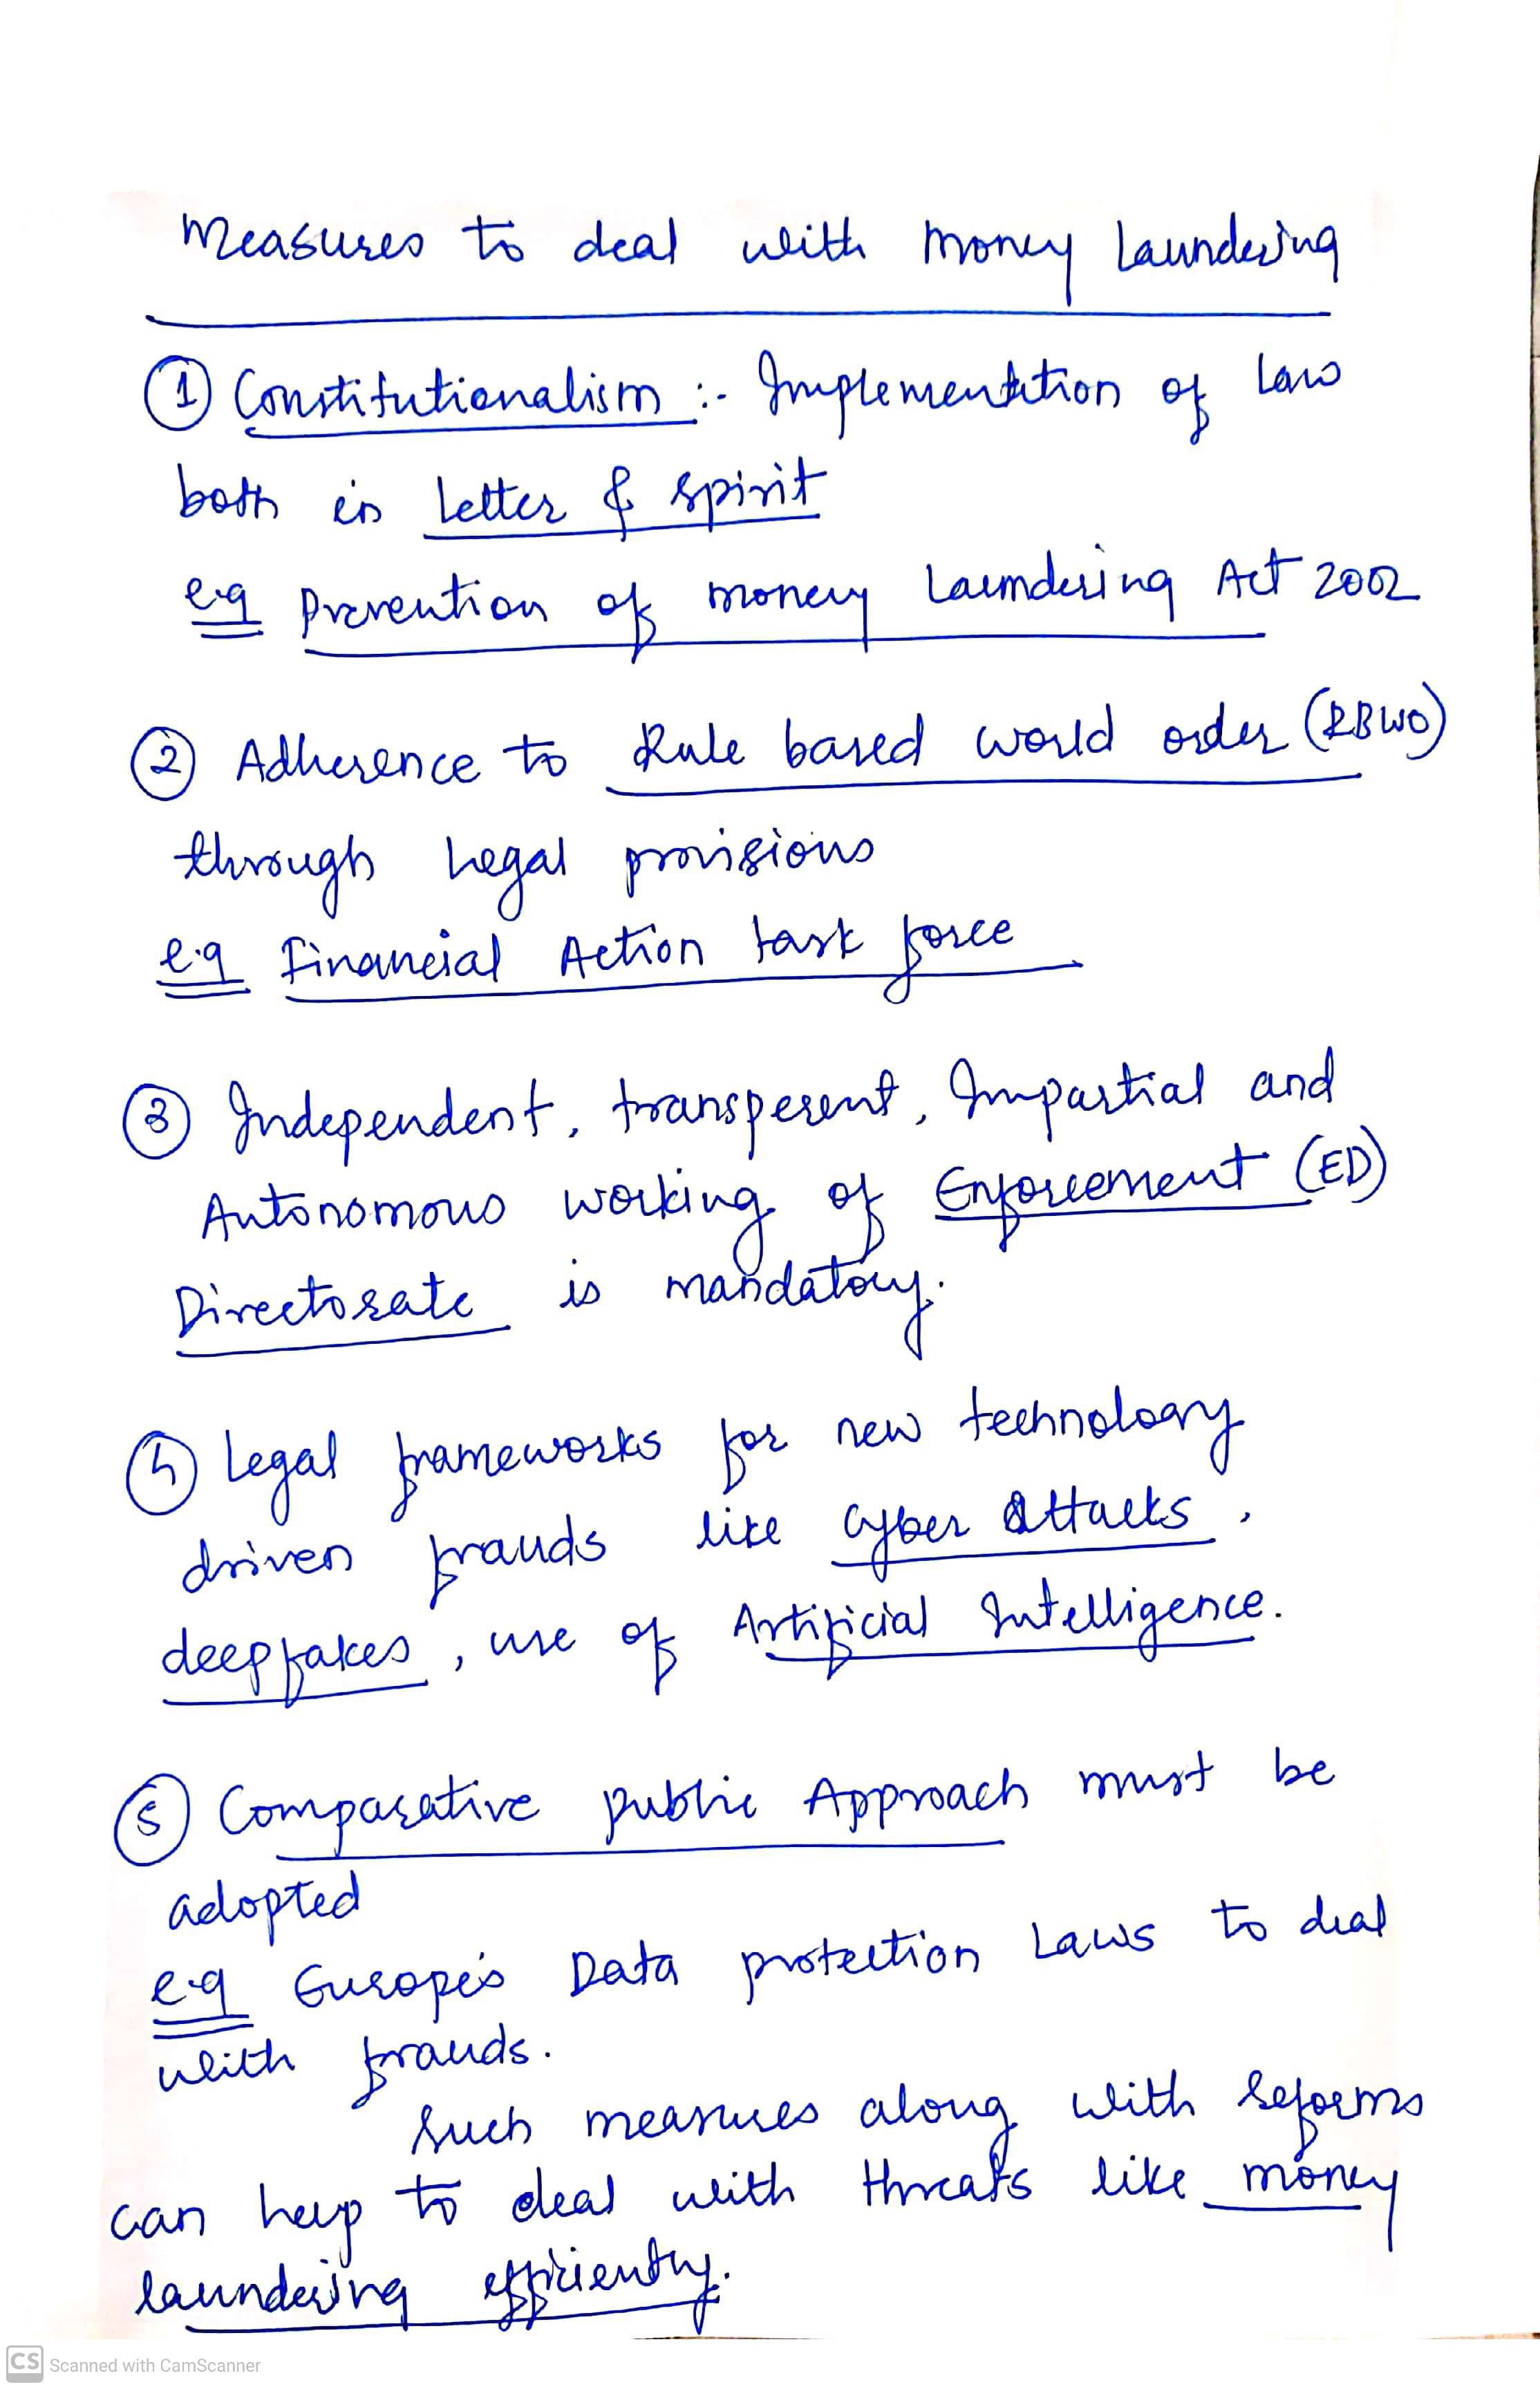 Measures to deal with money Laundering
① Constitutionalism :- Implementation of law
both in letter & spirit
e.g Prevention of money Laundering Act 2002
② Adherence to Rule based world order (RBWO)
through Legal provisions
e.g Financial Action task force
③ Independent, transperent, Impartial and
Autonomous working of Enforcement (ED)
Directorate is mandatory.
④ Legal frameworks for new technology
driven frauds like Cyber Attacks,
deepfakes, use of Artificial Intelligence.
⑤ Comparative public Approach must be
adopted
e.g Europe's Data protection Laws to deal
with frauds.
Such measures along with reforms
can help to deal with threats like money
laundering efficiently.
CS Scanned with CamScanner